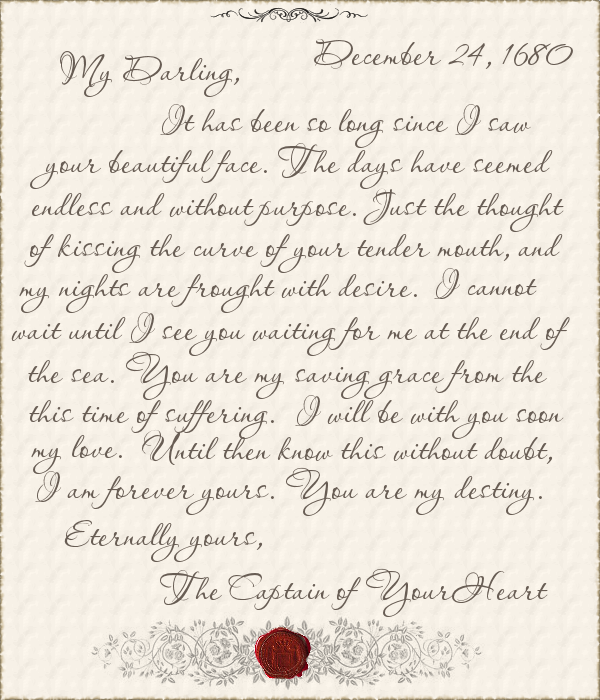 December 24, 1680
My Darling,
It has been so long since I saw
your beautiful face. The days have seemed
endless and without purpose. Just the thought
of kissing the curve of your tender mouth, and
my nights are frought with desire. I cannot
wait until I see you waiting for me at the end of
the sea. You are my saving grace from the
this time of suffering. I will be with you soon
my love. Until then know this without doubt,
I am forever yours. You are my destiny.
Eternally yours,
The Captain of Your Heart